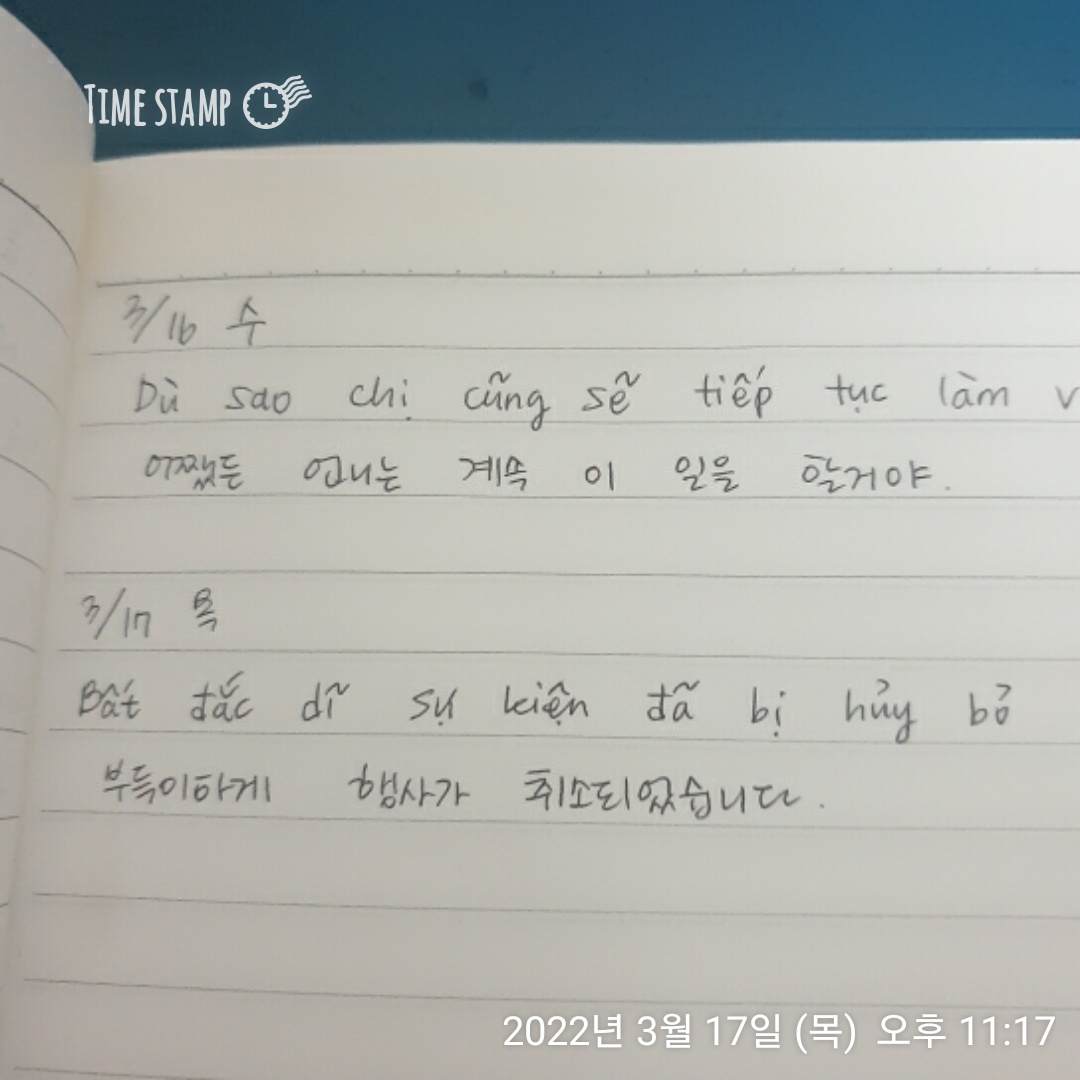 TIME STAMP
3/16 수
Dù sao chị cũng sẽ tiếp tục làm v
어쨌든 언니는 계속 이 일을 할거야.
3/17 목
Bất đắc dĩ sự kiện đã bị hủy bỏ
부득이하게 행사가 취소되었습니다.
2022년 3월 17일 (목) 오후 11:17